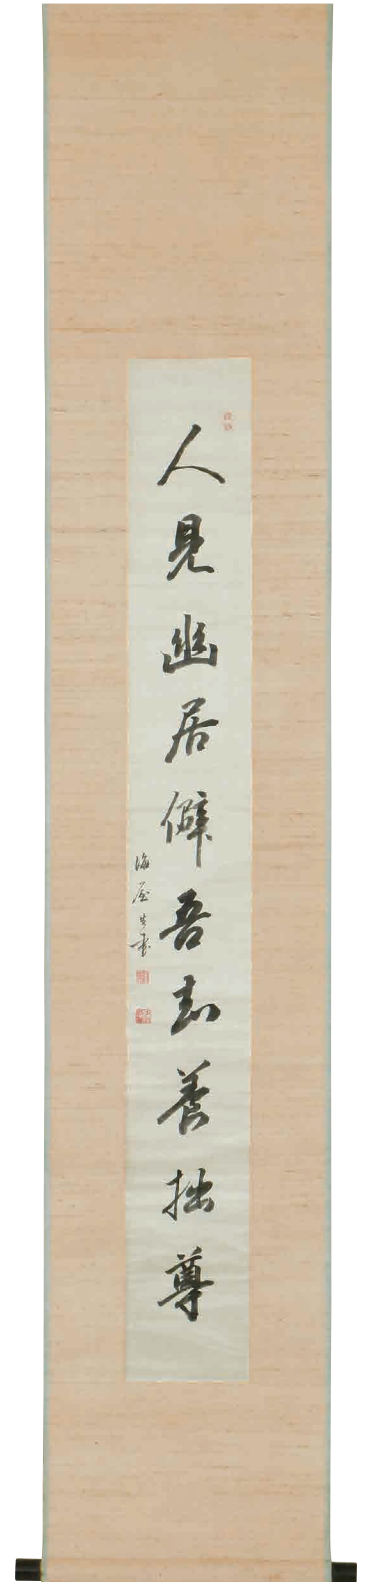 人見幽居僻吾知養拙尊
海屋生書